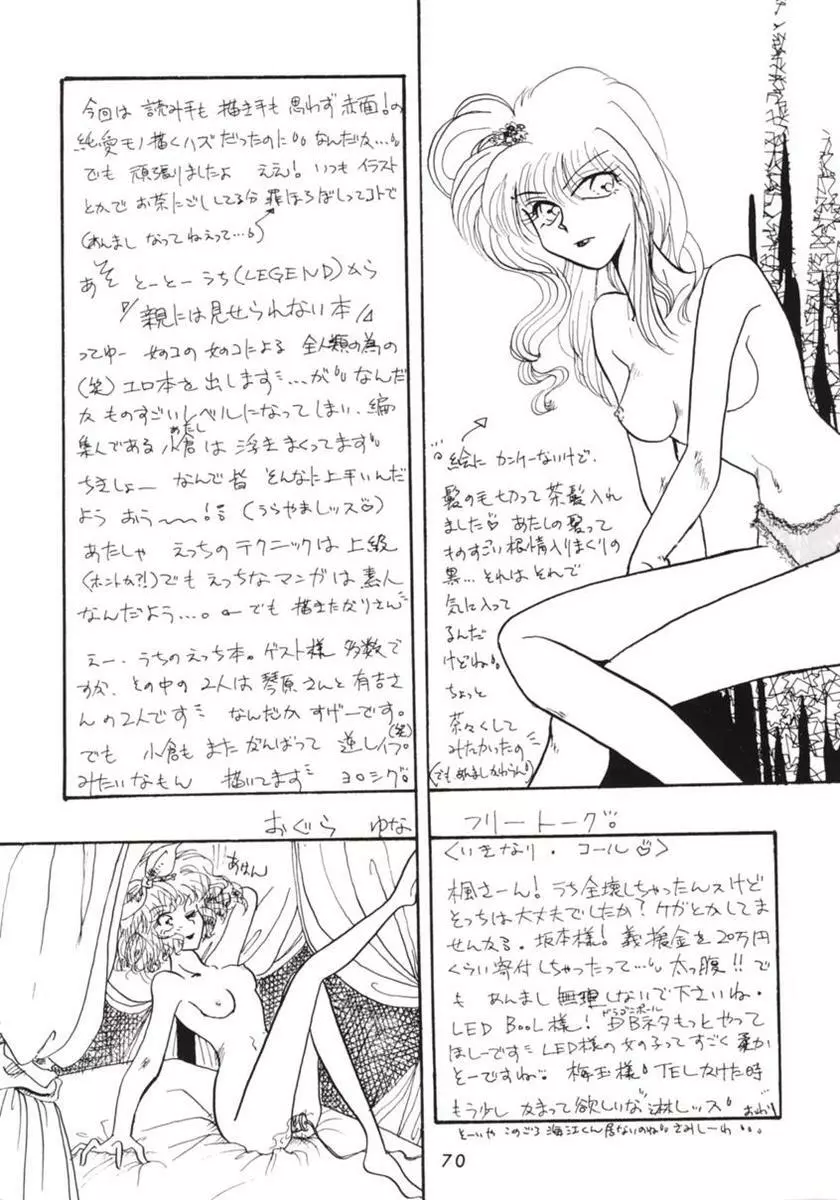 今回は 読み手も 描き手も 思わず赤面!の
純愛モノ描くハズだったのに なんだか…
でも 頑張りましたよ ええ! いつも イラスト
とかで お茶にごししてる分 罪ほろぼしってコトで
(あんまし なってねえって…)
あそ とーとーうち(LEGEND)から
『親には見せられない本』
ってゆー 女のコの女のコによる 全人類の為の
(笑)エロ本を出します…が なんだ
か ものすごいレベルになってしまい、編
集人である小倉は 浮きまくってます
あたし
ちきしょー なんで皆 そんなに上手いんだ
よう おう〜〜!! (うらやましッス♡)
あたしゃ えっちのテクニックは上級
(ホントか?!)でも えっちなマンガは 素人
なんだよう…。 でも 描きたがりさん
えー、うちのえっち本。ゲスト様 多数で
すが、その中の2人は 琴原さんと有吉さ
んの2人です なんだか すげーです。
でも 小倉も また がんばって 逆レイプ(笑)
みたいなもん 描いてます ヨロシグ。
絵に カンケーないけど、
髪の毛切って茶髪入れ
ました♡ あたしの髪って
ものすごい根情入りまくりの
黒… それはそれで
気に入って
るんだ
けどね
ちょっと
茶々くして
みたかったの
(でもあんましかわらん)
おぐら ゆな フリートーク。
<いきなり・コール♡>
楓さーん! うち全壊しちゃったんスけど
そっちは大丈夫でしたか? ケガとかしてま
せんかる。坂本様! 義援金を20万円
くらい寄付しちゃったって… 太っ腹!! で
も あんまし無理しないで下さいね。
LED BooL様! DBネタもっとやって
ドラゴンボール
ほしーです LED様の女の子ってすごく柔か
そーですね。 梅玉様! TELかけた時
もう少し かまって欲しいな 淋しッス おわり
そーいや このごろ 海江くん居ないのね さみしーわ…
あはん
70